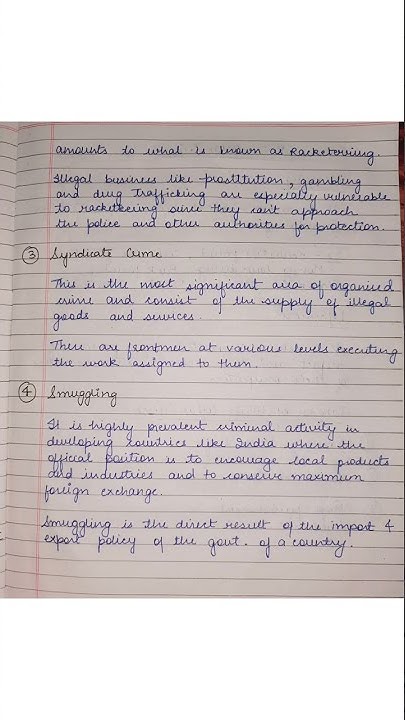 amounts to what is known as Racketeering.
Illegal business like prostitution, gambling
and drug trafficking are especially vulnerable
to racketeering since they can't approach
the police and other authorities for protection.
③ Syndicate Crime
This is the most significant area of organised
crime and consist of the supply of illegal
goods and services.
There are frontmen at various levels executing
the work assigned to them.
④ Smuggling
It is highly prevalent criminal activity in
developing countries like India where the
official position is to encourage local products
and industries and to conserve maximum
foreign exchange.
Smuggling is the direct result of the import &
export policy of the govt. of a country.